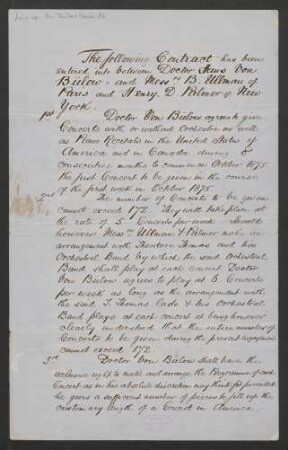 The following Contract has been
entered into between Doctor Hans Von
Bülow, and Mess.rs B. Ullman of
Paris and Henry. D. Palmer of New
York.
1st Doctor Von Bülow agrees to give
Concerts with or without Orchestra as well
as Piano Recitals in the United States of
America and in Canada during
consecutive months to commence October 1875
the first Concert to be given in the course
of the first week in October 1875.
2nd The number of Concerts to be given
cannot exceed 172. They will take place at
the rate of 5 Concerts per week. Should
however Mess.rs Ullman & Palmer make an
arrangement with Theodore Thomas and his
Orchestral Band by which the said Orchestral
Band shall play at each concert Doctor
Von Bülow agrees to play at 6 Concerts
per week as long as the arrangement with
the said T. Thomas lasts & his Orchestral
Band plays at each concert it being however
clearly understood that the entire number of
Concerts to be given during the present engagement
cannot exceed 172.
3rd Doctor Von Bülow shall have the
exclusive right to make and arrange the Programme of each
Concert as in his absolute discretion may think fit provided
he gives a sufficient number of pieces to fill up the
customary length of a Concert in America.